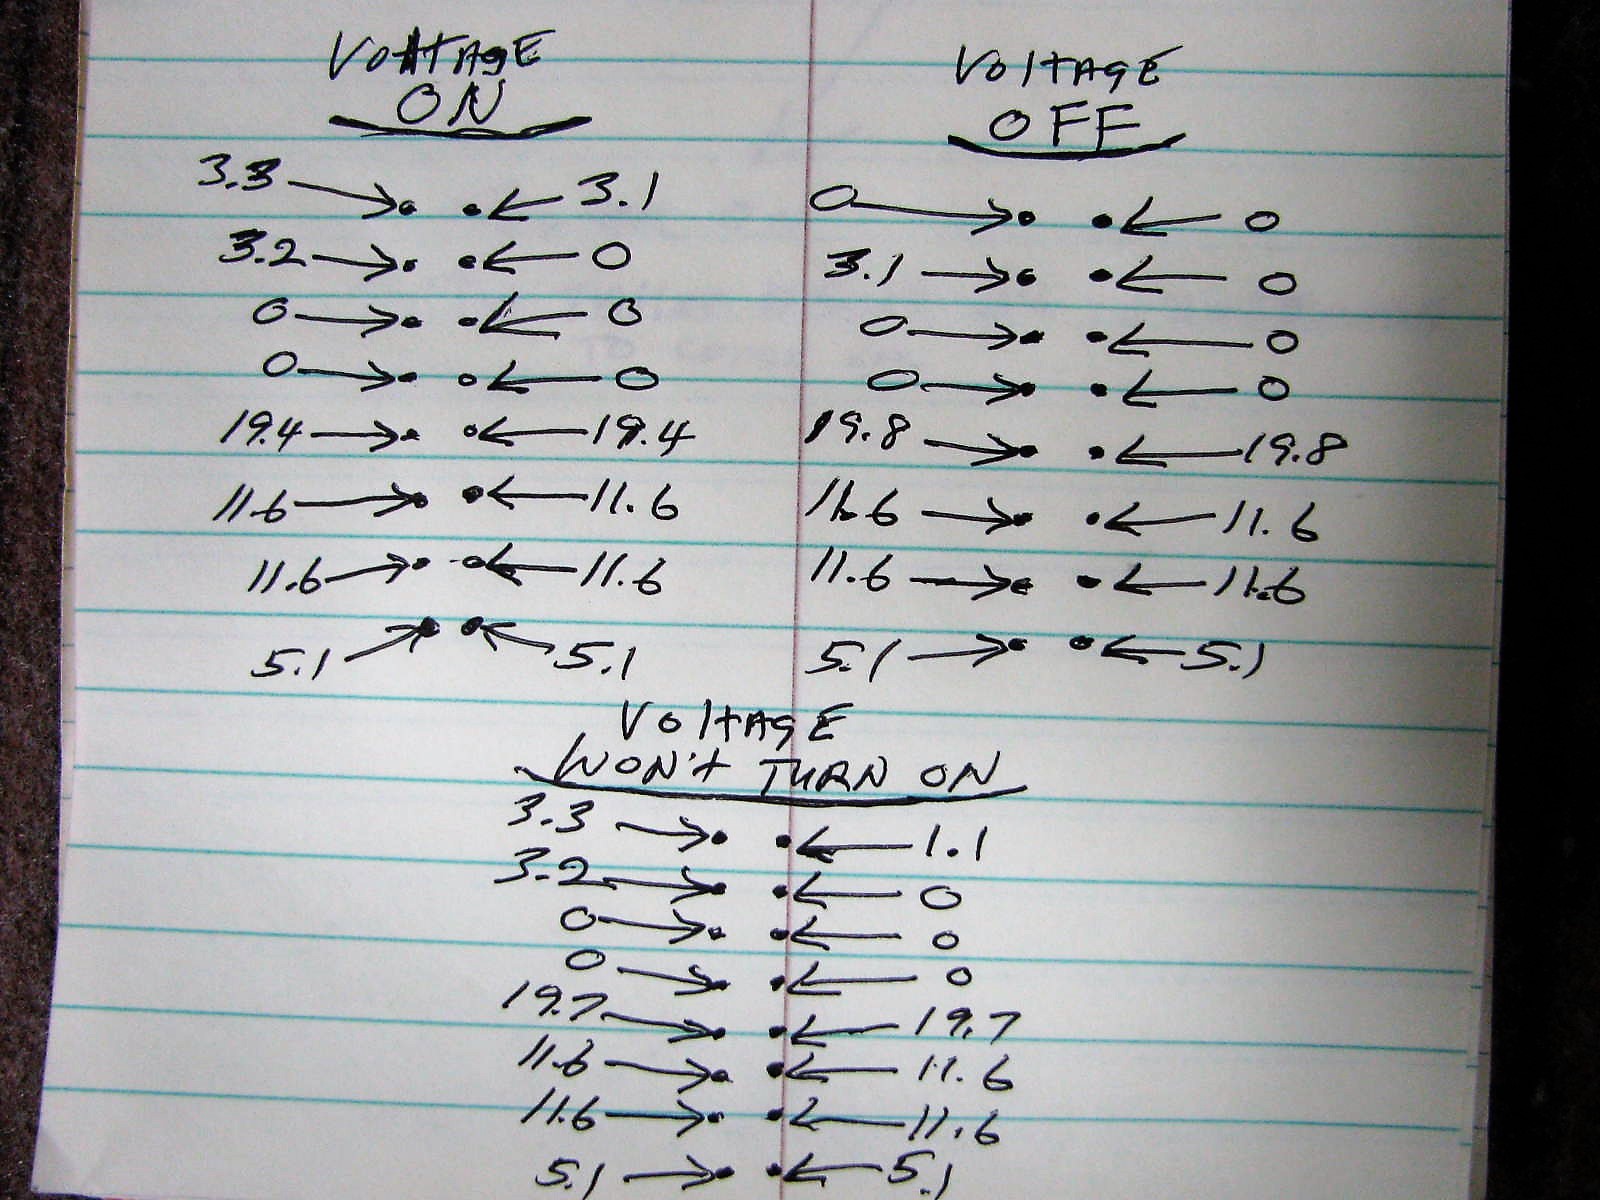 VOLTAGE
ON
3.3 3.1
3.2 0
0 0
0 0
19.4 19.4
11.6 11.6
11.6 11.6
5.1 5.1
VOLTAGE
OFF
0 0
3.1 0
0 0
0 0
19.8 19.8
11.6 11.6
11.6 11.6
5.1 5.1
VOLTAGE
WON'T TURN ON
3.3 1.1
3.2 0
0 0
0 0
19.7 19.7
11.6 11.6
11.6 11.6
5.1 5.1